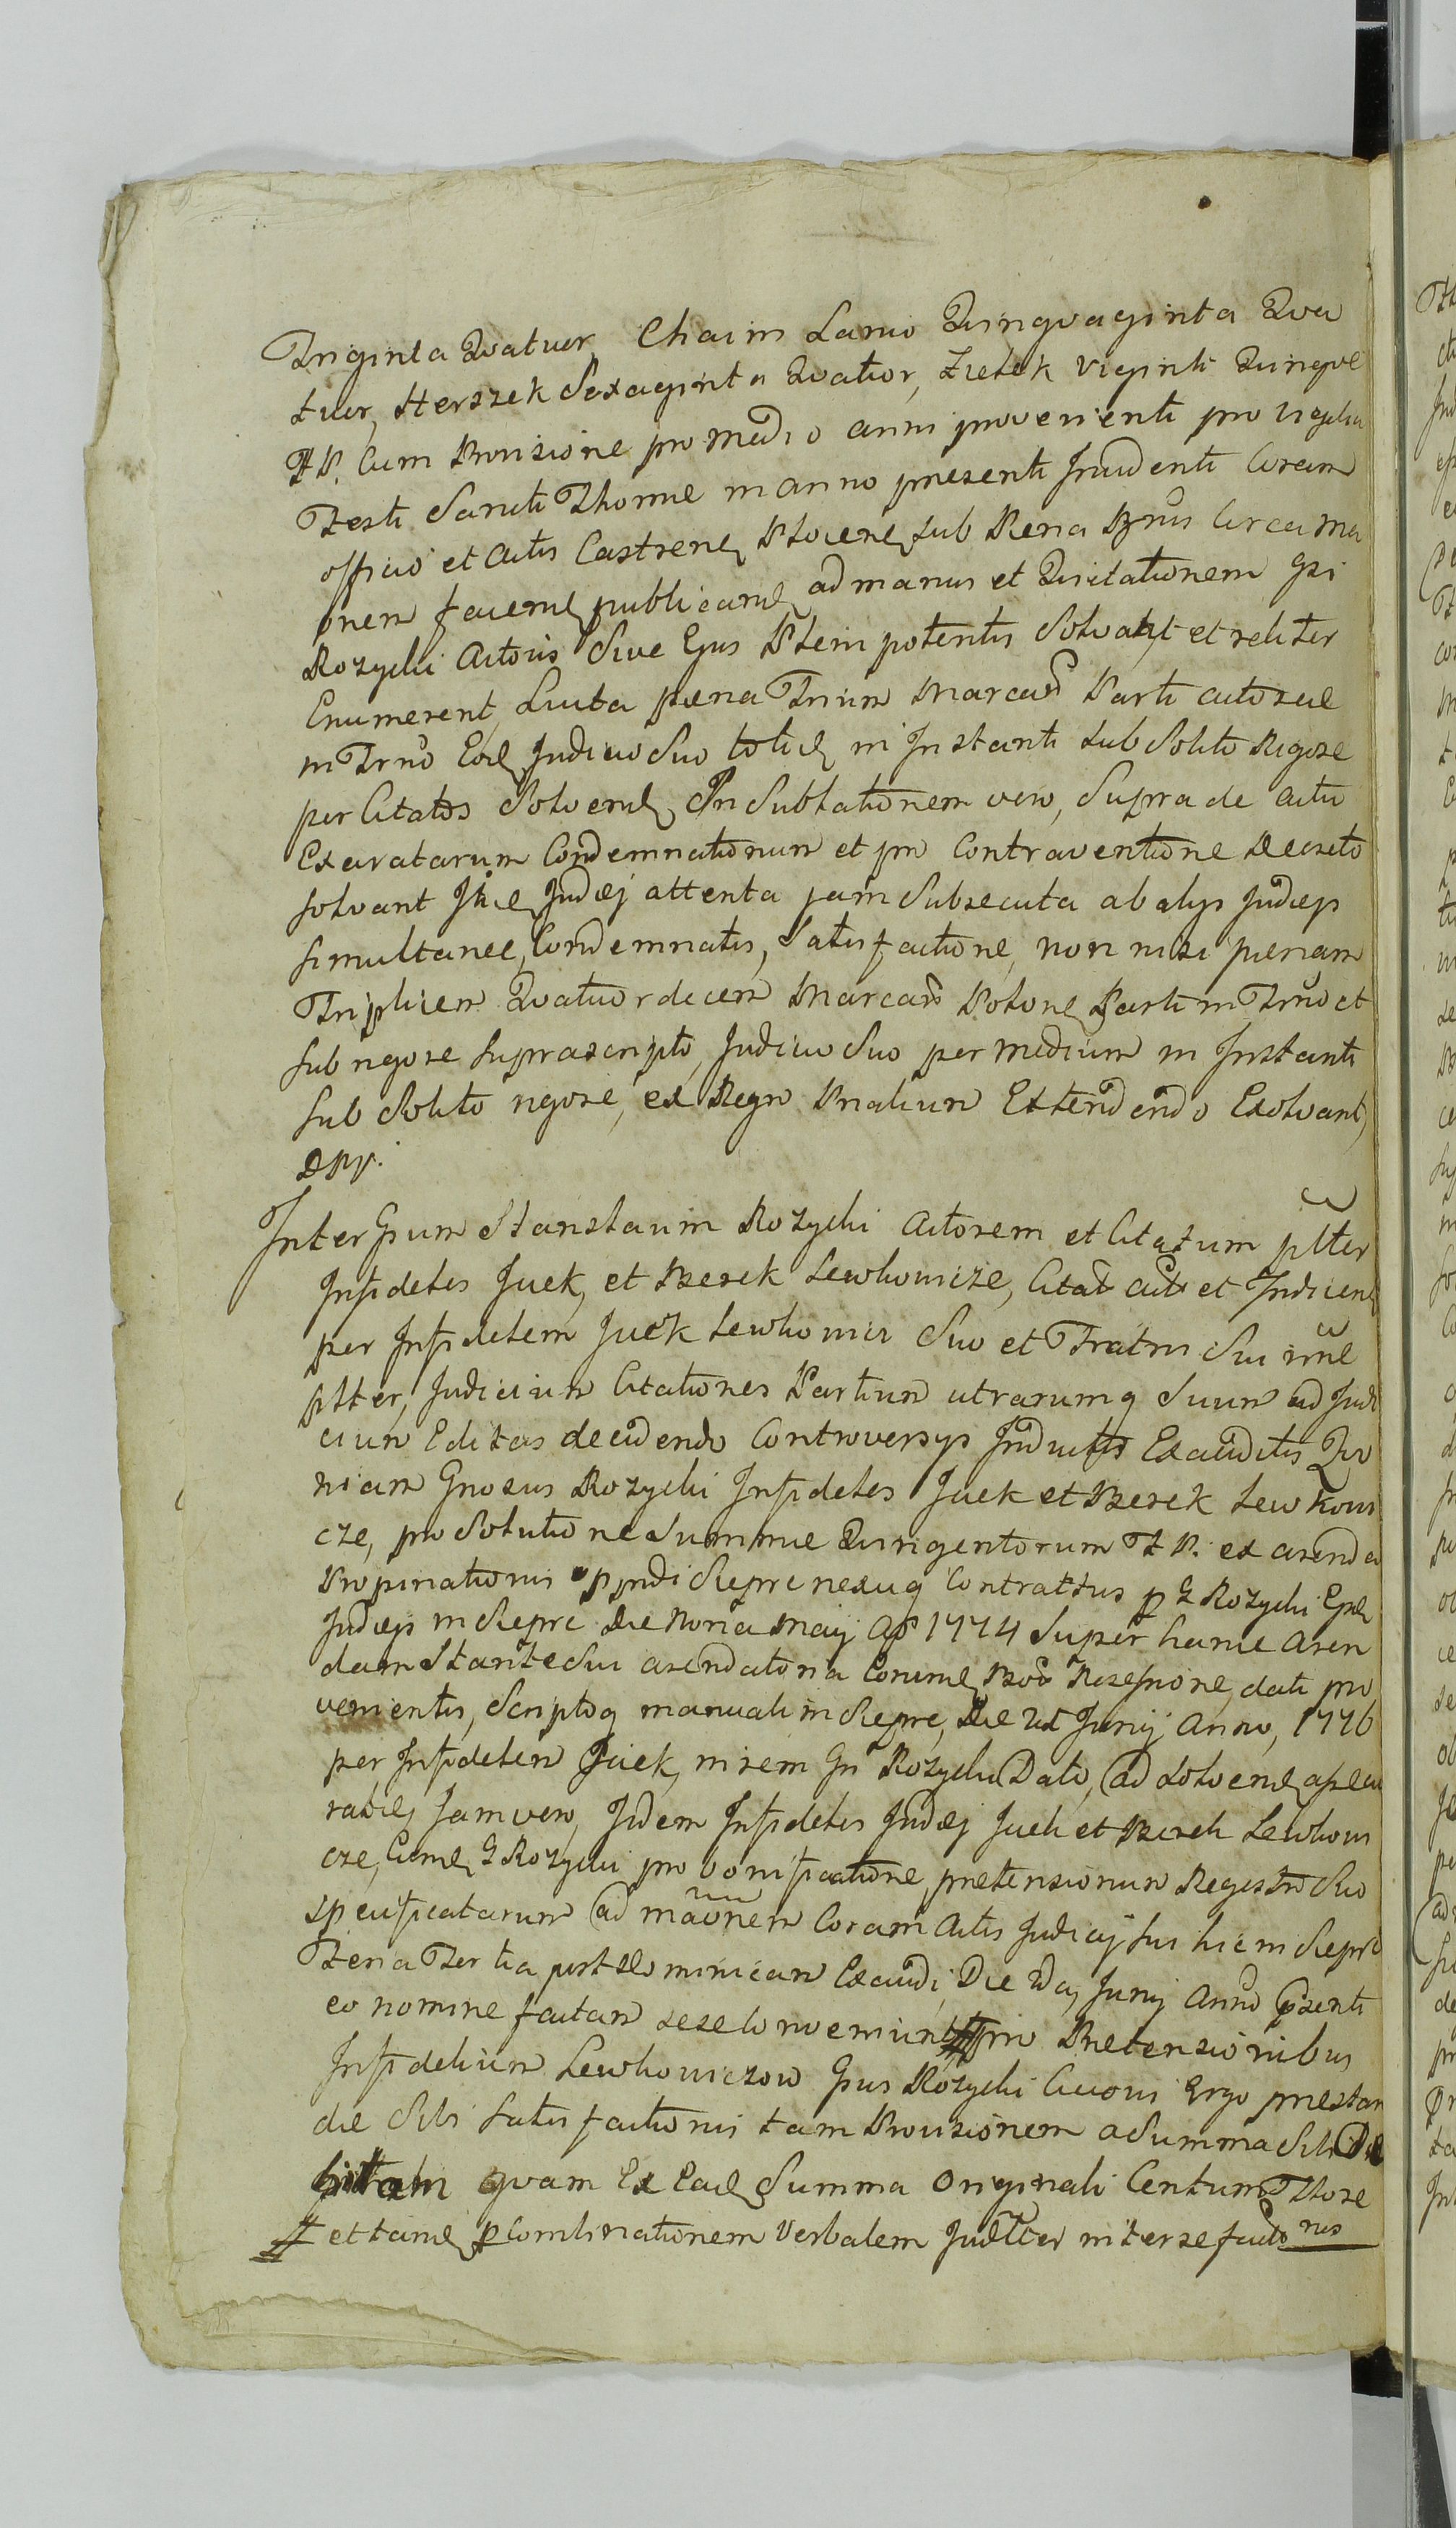 Triginta Quatuor, Chaim Lanio Quinqvaginta Qva
tuor, Herszek Sexaginta Qvatuor, Zielek Viginti Quinqve
FP. Cum Provisione pro Medio anni provenienti pro Vigilia
Festi Sancti Thomæ in anno præsenti Incidenti Coram
officio et Actis Castren Plocen sub Pœna Bznis Circa Ma
onem facien publican, ad manus et Quietationem Gsi
Rozycki Actoris Sive Ejus Plenipotentis Solvant et reliter
Enumerent, Luita pæna Trium Marcar Parti actoreæ
in Trno Eod Judicio Suo toties in Instanti sub Solito Rigore
per Citatos Solven, In Sublationem vero, Supra de actu
Exaratarum Condemnationum et pro Contraventione Decreto
solvant Judæj attenta jam Subsecuta ab alys Judæis
simultanee, Condemnatis, Satisfactione, non nisi pænam
Triplicem Qvatuordecem Marcar Polone Parti in Trno et
sub rigore suprascripto, Judicio Suo per Medium in Instanti
sub Solito rigore, ex Regro Pnalium Extendendo Exolvant,
DPpr.
Inter Gsum Stanslaum Rozycki Actorem et Citatum plter
Infideles Jcek, et Berek Lewkowicze, Citat act et Indicen
per Infidelem Jcek Lewkowicz Suo et Fratris Sui nne
plter, Judicium Citationes Partium utrarumq Suum ad Judi
cium Editas decidendo Controversys Inductis Exauditis Quo
niam Gnosus Rozycki Infideles Jcek et Berek Lewkowi
cze, pro Solutione Summæ Quingentorum FP. ex arenda
Propinationis ppndi Siepre nexuq Contractus p G Rozycki Epd
Judæis in Siepre Die Nona Maij Ao 1774 Super hanc Aren
dam Stante Sui arendatoria Eorund Bor Possessione, dati pro
venientis, Scriptoq manuali in Siepre, Die 21 Junij Anno, 1776
per Infidelem Jcek, in rem Gn Rozycki Dato, ad Solven assecu
ratæ, Jam vero, Jidem Infideles Judæj Jcek et Berek Lewkowi
cze, Eund G Rozycki pro bonificatione, prætensionum Regestro Suo
specificatarum ad maonem Coram Actis Judicij sui hic in Siepre
Feria Tertia post Dominicam Exaudi, Die 2da Junij Anno præsenti
eo nomine factam sese convenerunt # pro Prætensionibus
Infidelium Lewkowiczow Gsus Rozycki Cuious Ergo præstan
dæ Sibi satisfactionis tam Provisionem a Summa Sibi De
bitam quam Ex Ead Summa Originali Centum Flore
# et tand p Combinationem Verbalem Judlter inter se facto nos